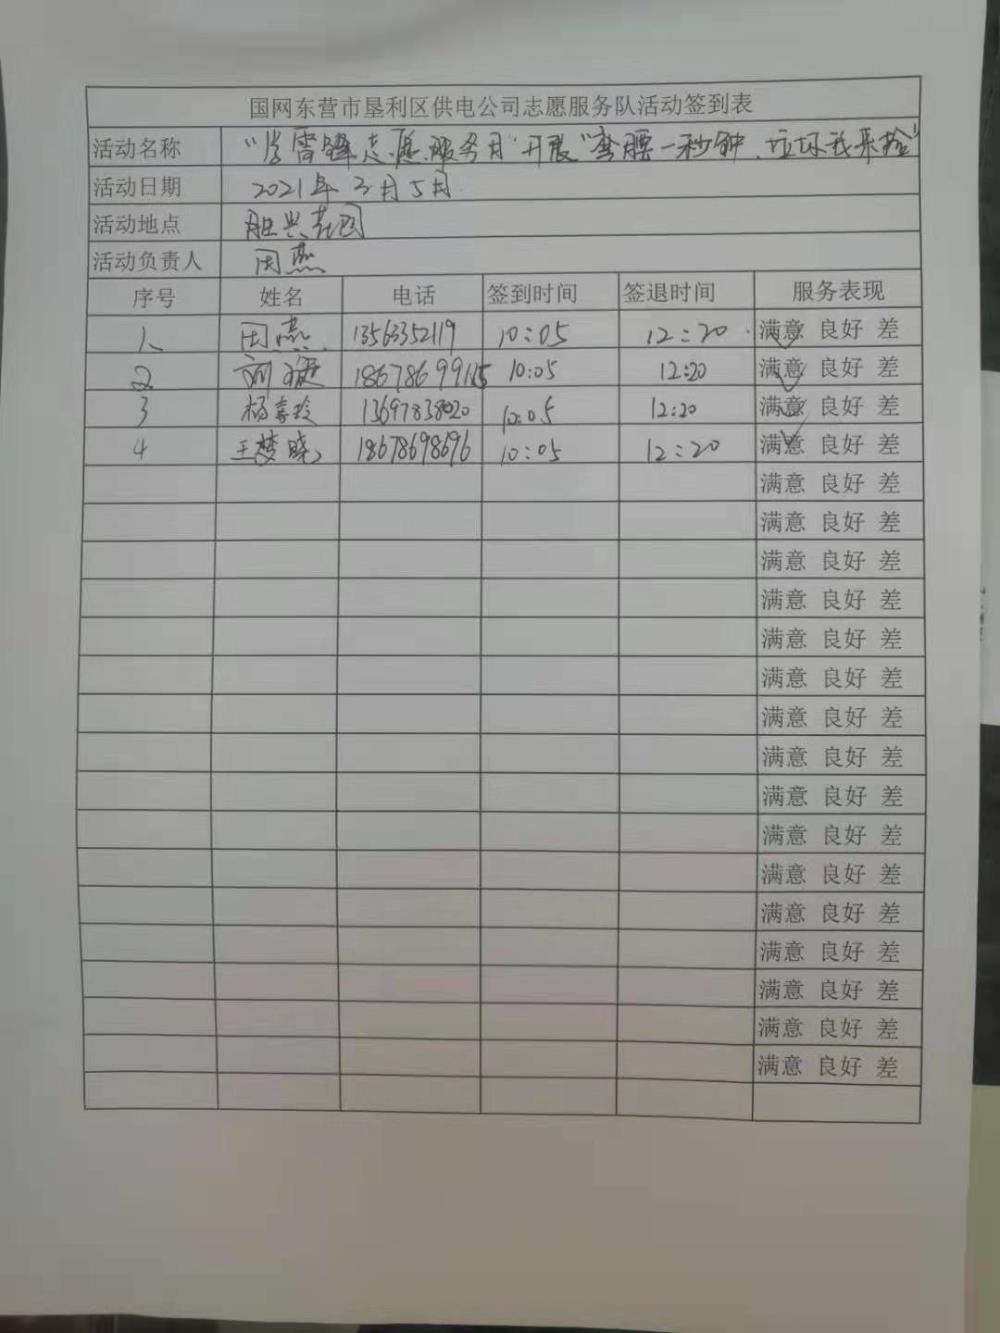 国网东营市垦利区供电公司志愿服务队活动签到表
活动名称 "学雷锋志愿服务月"开展"弯腰一秒钟、垃圾我来捡"
活动日期 2021年3月5日
活动地点 胜兴花园
活动负责人 周燕
序号 姓名 电话 签到时间 签退时间 服务表现
1 周燕 13563352119 10:05 12:20 满意 良好 差
2 刘 10:05 12:20 满意 良好 差
3 杨 13697838020 10:05 12:20 满意 良好 差
4 王梦晓 18678698696 10:05 12:20 满意 良好 差
满意 良好 差
满意 良好 差
满意 良好 差
满意 良好 差
满意 良好 差
满意 良好 差
满意 良好 差
满意 良好 差
满意 良好 差
满意 良好 差
满意 良好 差
满意 良好 差
满意 良好 差
满意 良好 差
满意 良好 差
满意 良好 差